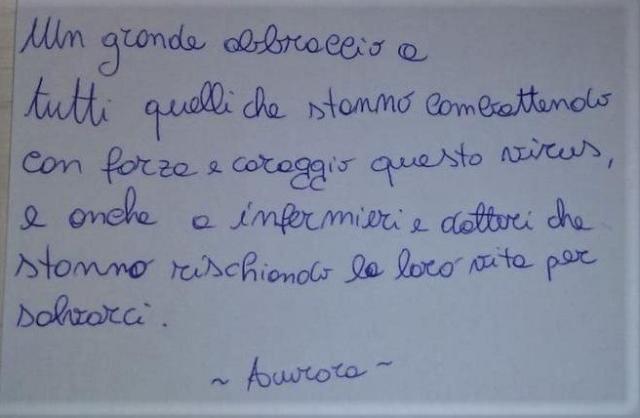 Un grande abbraccio a
tutti quelli che stanno combattendo
con forza e coraggio questo virus,
e anche a infermieri e dottori che
stanno rischiando la loro vita per
salvarci.
~ Aurora ~